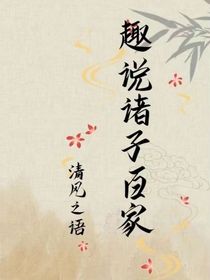 趣说诸子百家
清风之语